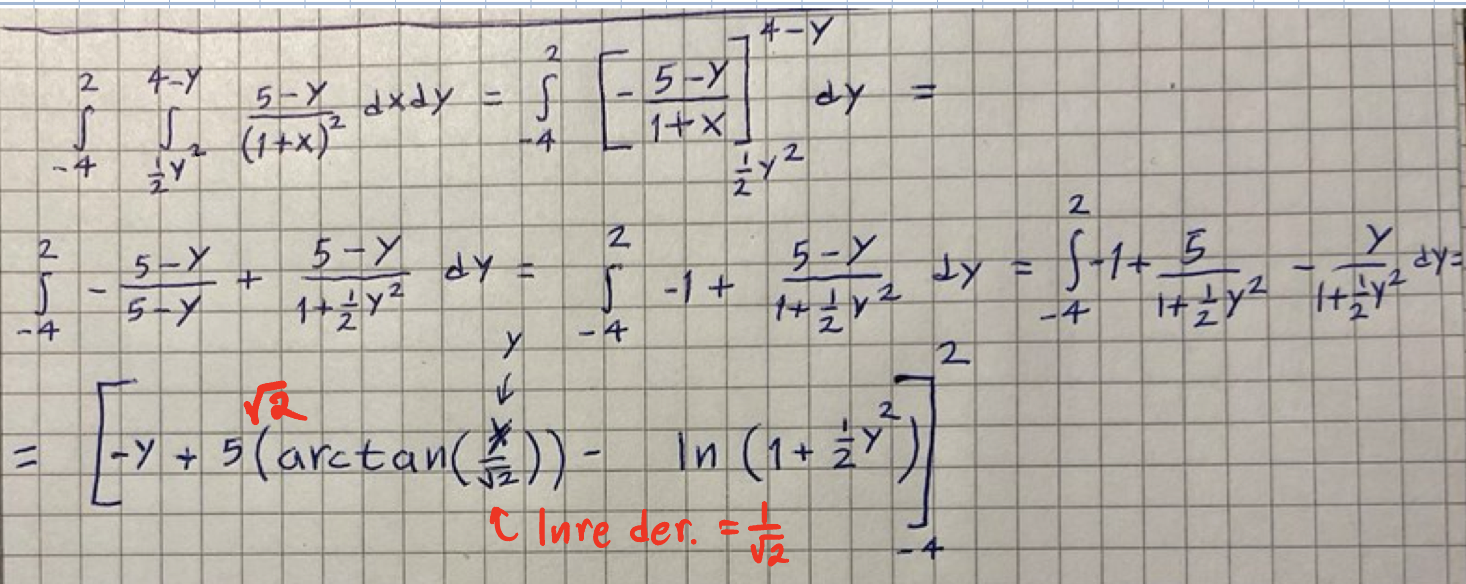 ∫_{-4}^{2} ∫_{½y²}^{4-y} (5-y)/(1+x)² dxdy = ∫_{-4}^{2} [-(5-y)/(1+x)]_{½y²}^{4-y} dy =
∫_{-4}^{2} -(5-y)/(5-y) + (5-y)/(1+½y²) dy = ∫_{-4}^{2} -1 + (5-y)/(1+½y²) dy = ∫_{-4}^{2} -1 + 5/(1+½y²) - y/(1+½y²) dy =
y
↓
√2
= [-y + 5(arctan(x/√2)) - ln(1+½y²)]_{-4}^{2}
↑ Inre der. = 1/√2